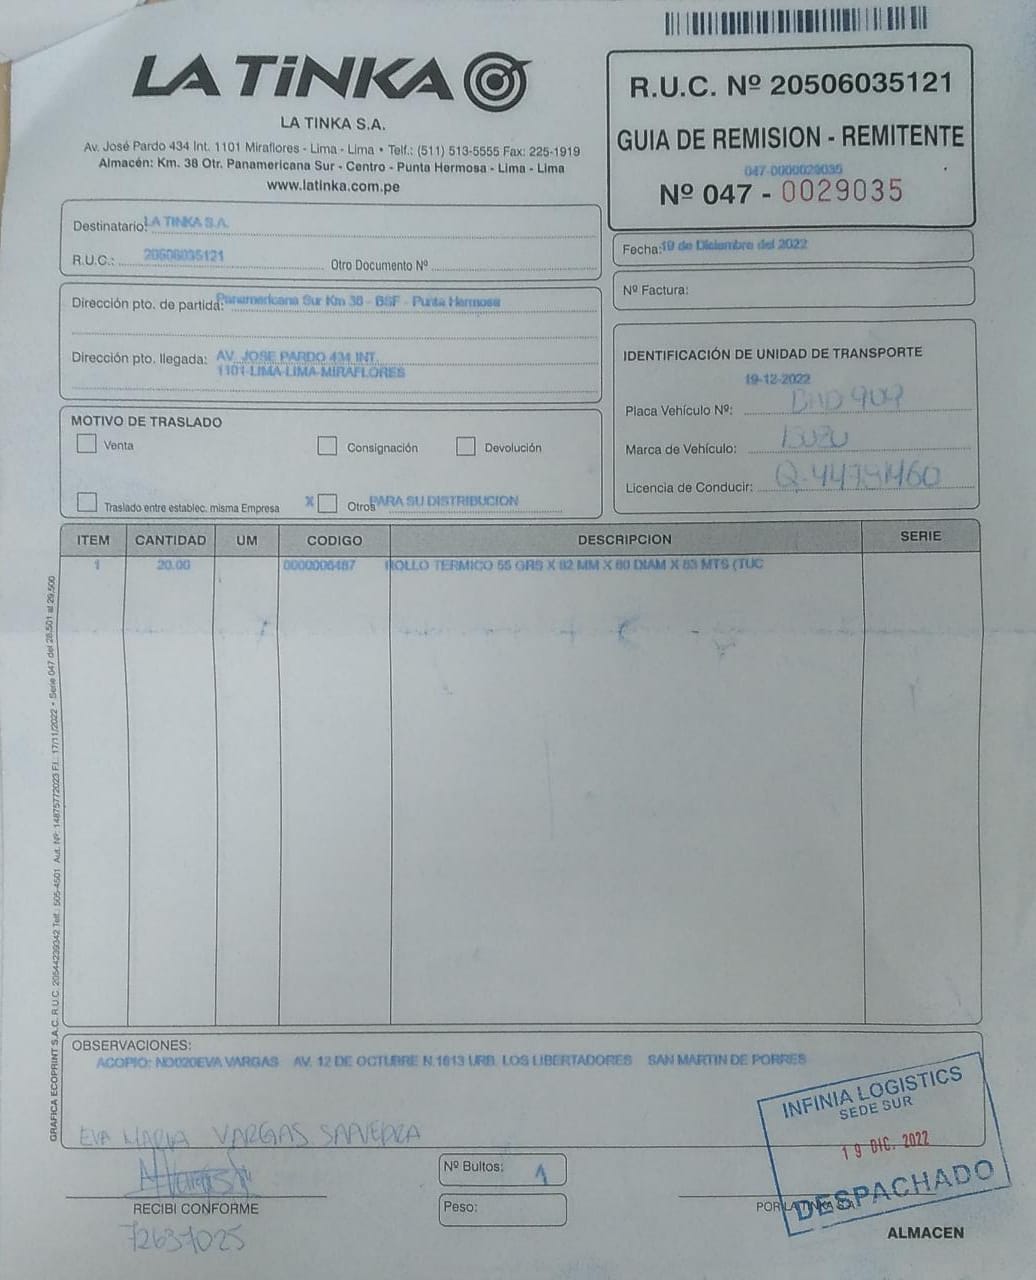 LA TiNKA
LA TINKA S.A.
Av. José Pardo 434 Int. 1101 Miraflores - Lima - Lima • Telf.: (511) 513-5555 Fax: 225-1919
Almacén: Km. 38 Otr. Panamericana Sur - Centro - Punta Hermosa - Lima - Lima
www.latinka.com.pe
R.U.C. Nº 20506035121
GUIA DE REMISION - REMITENTE
047-0000029035
Nº 047 - 0029035
Destinatario: LA TINKA S.A.
R.U.C.: 20506035121 Otro Documento Nº
Fecha: 19 de Diciembre del 2022
Nº Factura:
Dirección pto. de partida: Panamericana Sur Km 38 - BSF - Punta Hermosa
Dirección pto. llegada: AV. JOSE PARDO 434 INT.
1101-LIMA-LIMA-MIRAFLORES
IDENTIFICACIÓN DE UNIDAD DE TRANSPORTE
19-12-2022
Placa Vehículo Nº:
Marca de Vehículo: ISUZU
Licencia de Conducir:
MOTIVO DE TRASLADO
Venta Consignación Devolución
Traslado entre establec. misma Empresa X Otros PARA SU DISTRIBUCION
ITEM CANTIDAD UM CODIGO DESCRIPCION SERIE
1 20.00 0000006487 ROLLO TERMICO 55 GRS X 82 MM X 80 DIAM X 83 MTS (TUC
GRAFICA ECOPRINT S.A.C. R.U.C. 20544239342 Telf.: 505-4501 Aut. Nº: 14875772023 F.I.: 17/11/2022 • Serie 047 del 28,501 al 29,500
OBSERVACIONES:
ACOPIO: ND020EVA VARGAS AV. 12 DE OCTUBRE N.1613 URB. LOS LIBERTADORES SAN MARTIN DE PORRES
EVA MARIA VARGAS SAAVEDRA
RECIBI CONFORME
72637025
Nº Bultos: 1
Peso:
INFINIA LOGISTICS
SEDE SUR
19 DIC. 2022
DESPACHADO
POR LA TINKA S.A.
ALMACEN